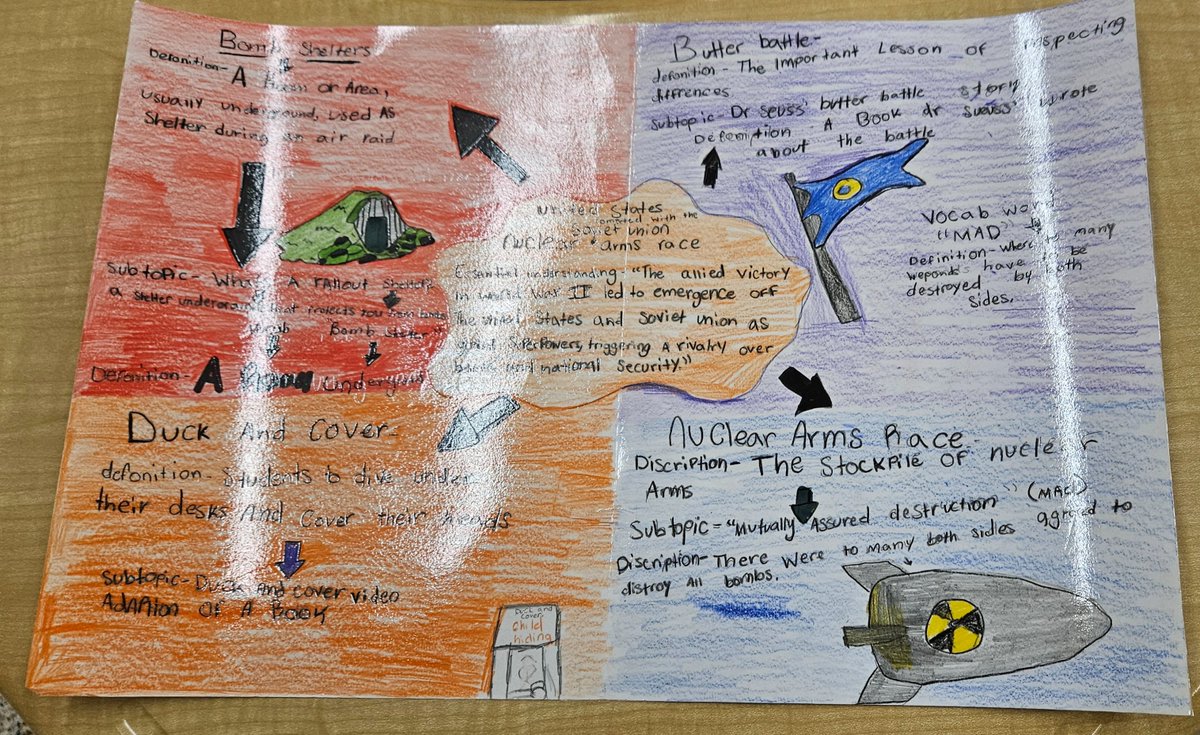 Bomb Shelters
Defonition- A Room or Area,
usually underground, used As
Shelter during an air raid
Subtopic- What A fallout shelter
a shelter underground that protects you from bombs
Vocab Bomb Shelter"
Defonition- A Underground
Butter battle-
defonition - The Important Lesson of respecting
diffrences
Subtopic- Dr Seuss' butter battle story
Defenition - A Book dr Sueuss' wrote
about the battle
Vocab word
"MAD" -
Definition- where to many
weponds have to be
destroyed by both
sides.
United States
competed with the
Soviet union
nuclear arms race
Essential understanding- "The allied victory
in world War II led to emergence off
The United States and Soviet union as
Superpowers, triggering A rivalry over
and national Security."
Duck And Cover-
defonition- Students to dive under
their desks And Cover their heads
Subtopic- Duck And cover video
Adaption of A Book
Duck and
Cover
Child
hiding
Nuclear Arms Race
Discription- The Stockpile of nuclear
Arms
Subtopic= "Mutually Assured destruction" (MAD)
Discription- There were to many both sides agreed to
distroy All bombs.